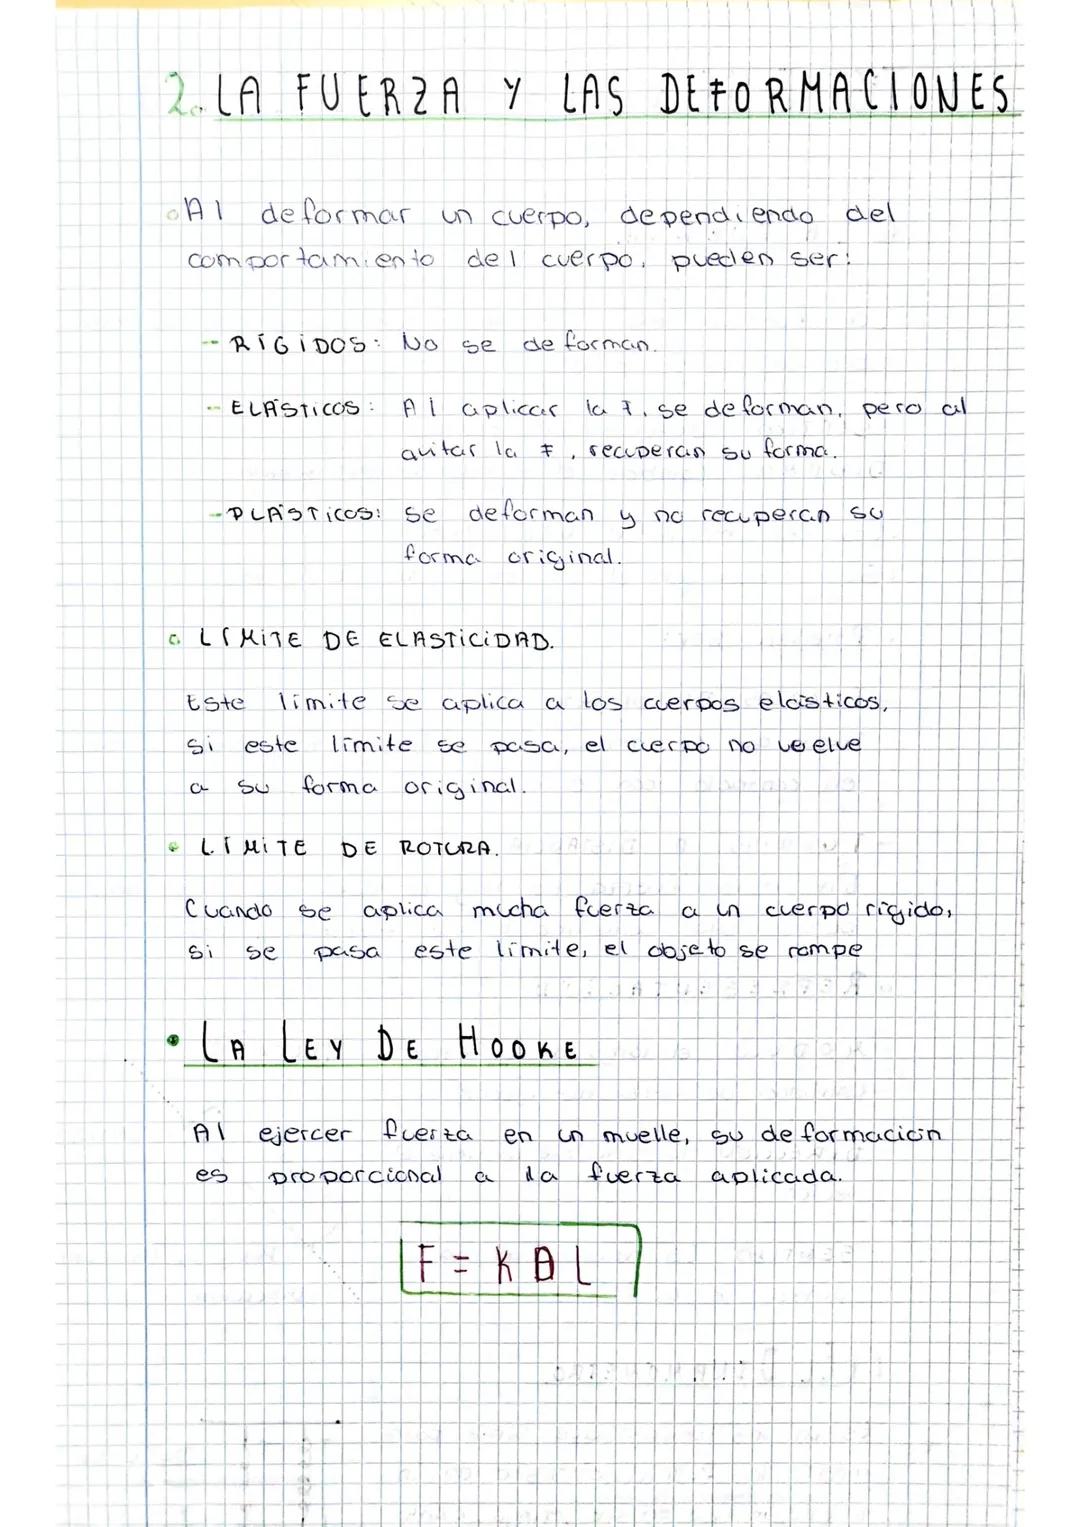 2. LA FUERZA Y LAS DEFORMACIONES
Al deformar un cuerpo, dependiendo del
comportamiento del cuerpo, pueden ser:
- RÍGIDOS: No se deforman.
- ELÁSTICOS: Al aplicar la F, se deforman, pero al
quitar la F, recuperan su forma.
- PLÁSTICOS: Se deforman y no recuperan su
forma original.
LÍMITE DE ELASTICIDAD.
Este límite se aplica a los cuerpos elásticos,
si este límite se pasa, el cuerpo no vuelve
a su forma original.
LÍMITE DE ROTURA.
Cuando se aplica mucha fuerza a un cuerpo rígido,
si se pasa este límite, el objeto se rompe
• LA LEY DE HOOKE
Al ejercer fuerza en un muelle, su deformación
es proporcional a la fuerza aplicada.
F = K Δ L